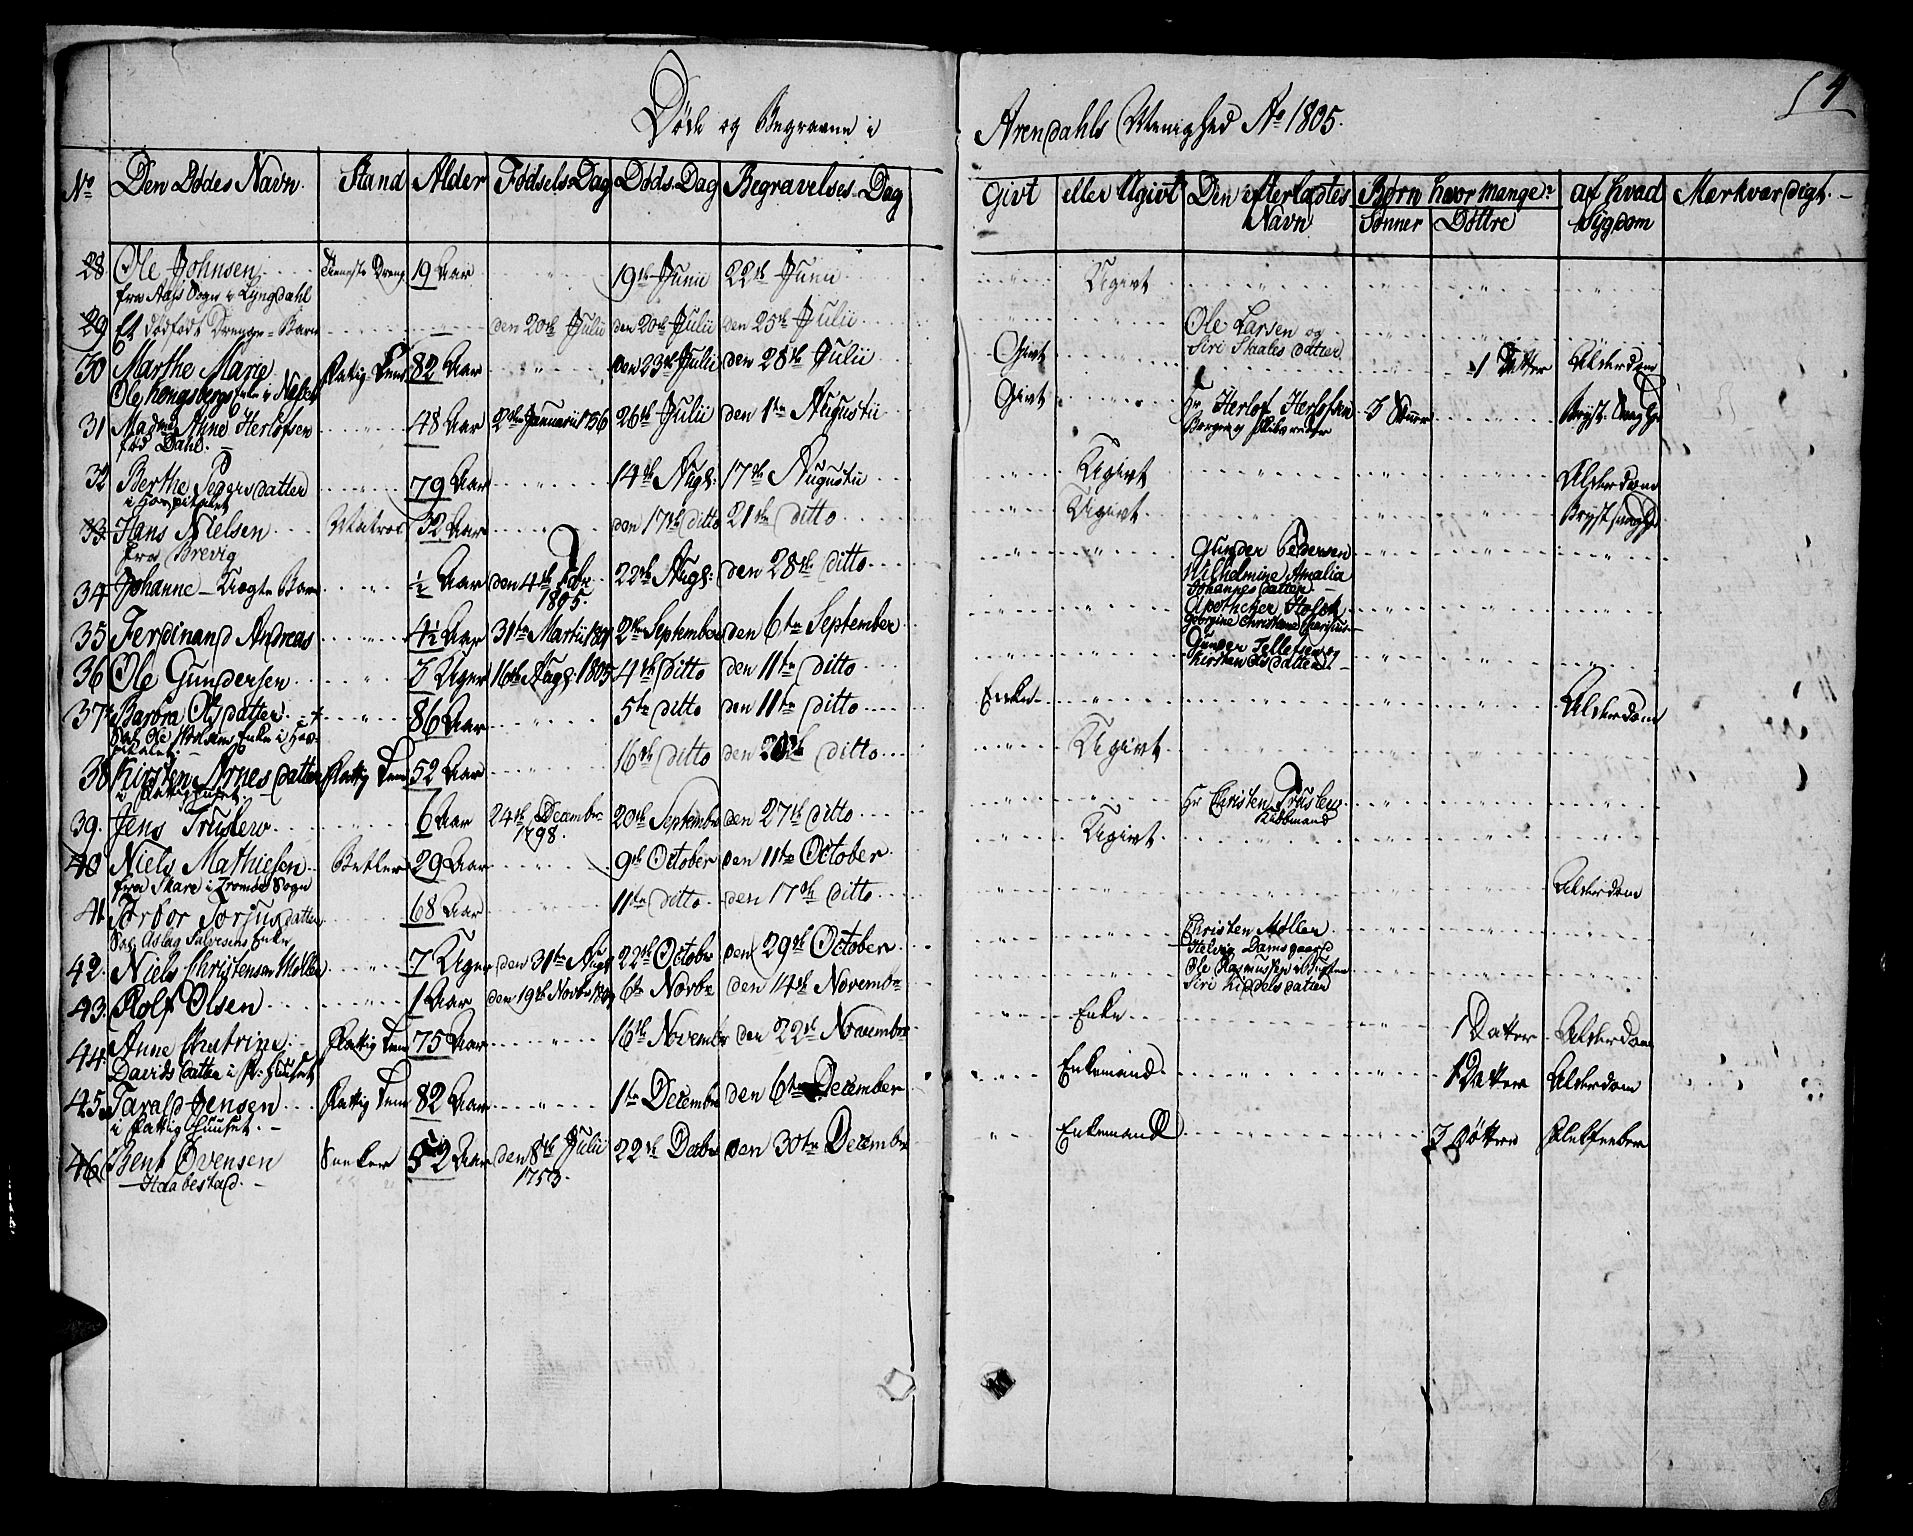 4
Døde og Begravne i Arendahls Menighed Ao 1805.
No Den Dødes Navn. Stand Alder Fødsels-Dag Døds-Dag Begravelses-Dag Givt eller Ugivt Den efterladtes Navn Børn hvor mange? Sønner Døttre af hvad Sygdom Mærkværdigt.
28 Ole Johnsen Tieneste Dreng 19 Aar " 19de Junii 22de Junii " Ugivt " " " "
fra Aass Sogn i Lyngdahl
29 Et dødfødt Drenge-Barn " den 20de Julii den 20de Julii den 25de Julii Ole Larsen og
Siri Skales datter
30 Marthe Marie Fattig Lem 82 Aar " den 23de Julii den 28de Julii Givt 1 Datter Alderdom
Ole Kongsbergs Enke i
31 Madme Anne Herlofsen " 48 Aar 2den Januarii 1756 26de Julii den 1te Augustii Givt Hr Herlof Herlofsen 3 Sønner Bryst Svaghed
fød Dahl. Borger og
32 Berthe Pedersdatter " 79 Aar " 14de Augs: 17de Augustii " Ugivt Alderdom
i Hospitalet
33 Hans Nielsen Matros 32 Aar " den 17de ditto 21de ditto " Ugivt Brystsvaghed
fra Brevig
34 Johanne - Uægte Barn " ½ Aar den 4de Febr 1805. 22de Augs: den 28de ditto " " Gunder Pedersen
Wilhelmine Amalia
Johannes datter.
35 Ferdinand Andreas " 4½ Aar 31te Martii 2den September den 6te September Apotheker
Georgine Christiane
36 Ole Gundersen " 3 Uger 16de Augs: 1805 4de ditto den 11te ditto Gunder Tellefsen og
Kirsten Olsdatter
37 Barbra Olsdatter " 86 Aar " 5te ditto den 11te ditto Enke Alderdom
Sal: Ole Enke i Hos-
pitalet
38 Kirsten Arnes datter Fattig Lem 52 Aar " 16de ditto den ditto " Ugivt
i Fattighuset
39. Jens Truslew " 6 Aar 24de December 1798. 20de September den 27de ditto Hr Christen Truslew
Kiøbmand
40 Niels Mathiesen Betler 29 Aar " 9de October den 11te October " Ugivt
fra Skare i Tromøe Sogn
41 Torbor Torjusdatter 68 Aar 11te ditto den 17de ditto Alderdom
Sal: Aslag Salvesens Enke
42. Niels Christensen Møller " 7 Uger den 31te Augs 22de October den 29de October Christen Møller
Helvig Damsgaard
43. Rolf Olsen " 1 Aar den 19de Novbr 6te Novbr den 14de Novembr Ole Rasmussen
Siri Kiddelsdatter
44. Anne Chatrine Fattig Lem 75 Aar " 16de Novembr den 22de Novembr " Enke 1 Datter Alderdom
Davids datter i F: Huuset
45. Tarald Jensen Fattig Lem 82 Aar " 1te Decembr den 6te December Enkemand 1 Datter Alderdom
i Fattig Huuset.
46 Bent Evensen 52 Aar den 8de Julii 1753. 22de Decbr den 30te Decembr " Enkemand 3 Døttre
Haabestad.